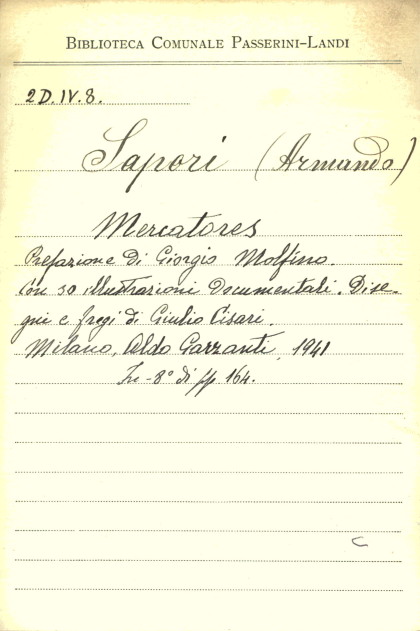 BIBLIOTECA COMUNALE PASSERINI-LANDI
2D.IV.8.
Sapori (Armando)
Mercatores
Prefazione di Giorgio Molfino.
Con 30 illustrazioni documentali. Dise-
gni e fregi di Giulio Cisari.
Milano, Aldo Garzanti, 1941
In-8° di pp. 164.